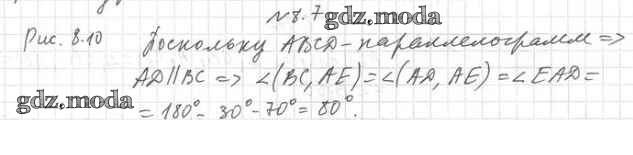 №8.7 gdz.moda
Рис. 8.10 Поскольку ABCD - параллелограмм =>
AD∥BC => ∠(BC, AE) = ∠(AD, AE) = ∠EAD =
gdz.moda = 180° - 30° - 70° = 80°.